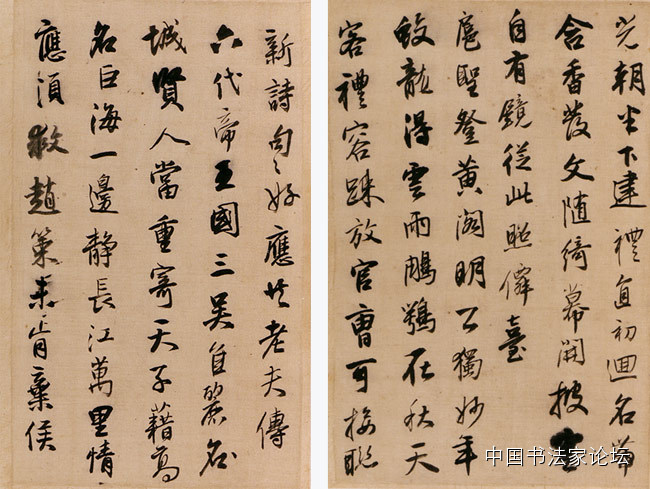 朝坐下建禮直初迴名
含香發文随綺幕開披雲
自有鏡從此照僊臺
扈聖登黄閣明公獨妙年
蛟龍得雲雨鵰鶚在秋天
客禮容踈放官曹可接聯
新詩句〻好應任老夫傳
六代帝王國三吴自麗名
城賢人當重寄天子藉高
名巨海一邊静長江萬里情
應須救趙策未肯棄侯
中国书法家论坛